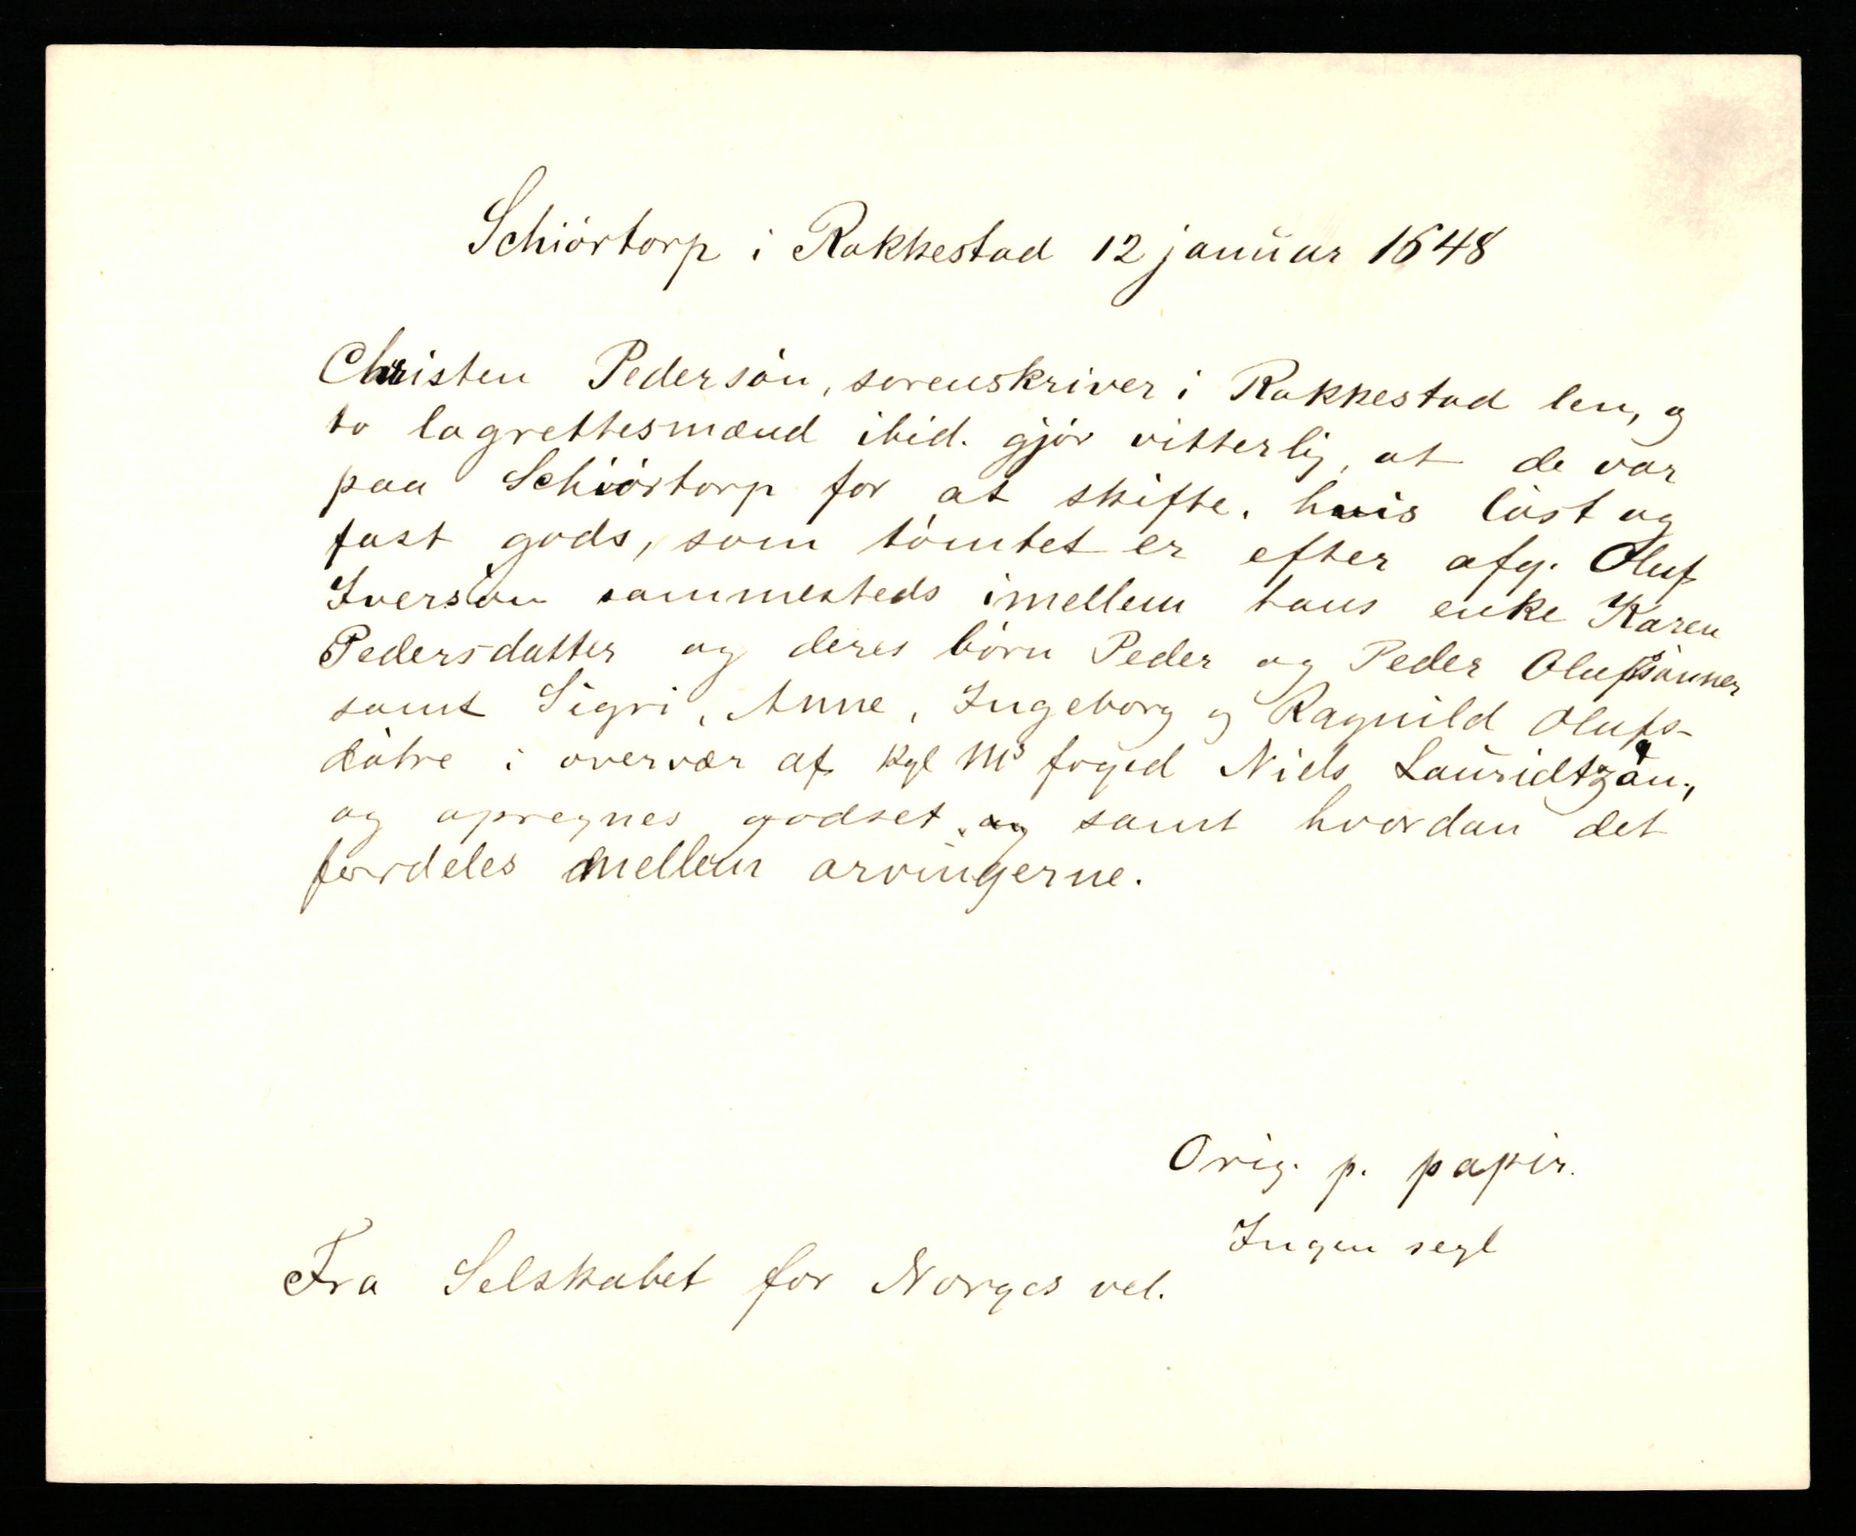 Schiörtorp i Rakkestad 12 januar 1648
Christen Pedersön, sorenskriver i Rakkestad len, og
to lagrettesmænd ibid. gjör vitterlig, at de var
paa Schiörtorp for at skifte, huis löst og
fast gods, som tömtet er efter afg. Oluf
Iversön sammesteds imellem hans enke Karen
Pedersdatter og deres börn Peder og Peder Olufsönner
samt Sigri, Anne, Ingeborg og Ragnild Olufs-
dötre i overvær af kgl Ms foged Niels Lauridtzön,
og opregnes godset samt hvordan det
fordeles mellem arvingerne.
Orig. p. papir.
Ingen segl
Fra Selskabet for Norges vel.